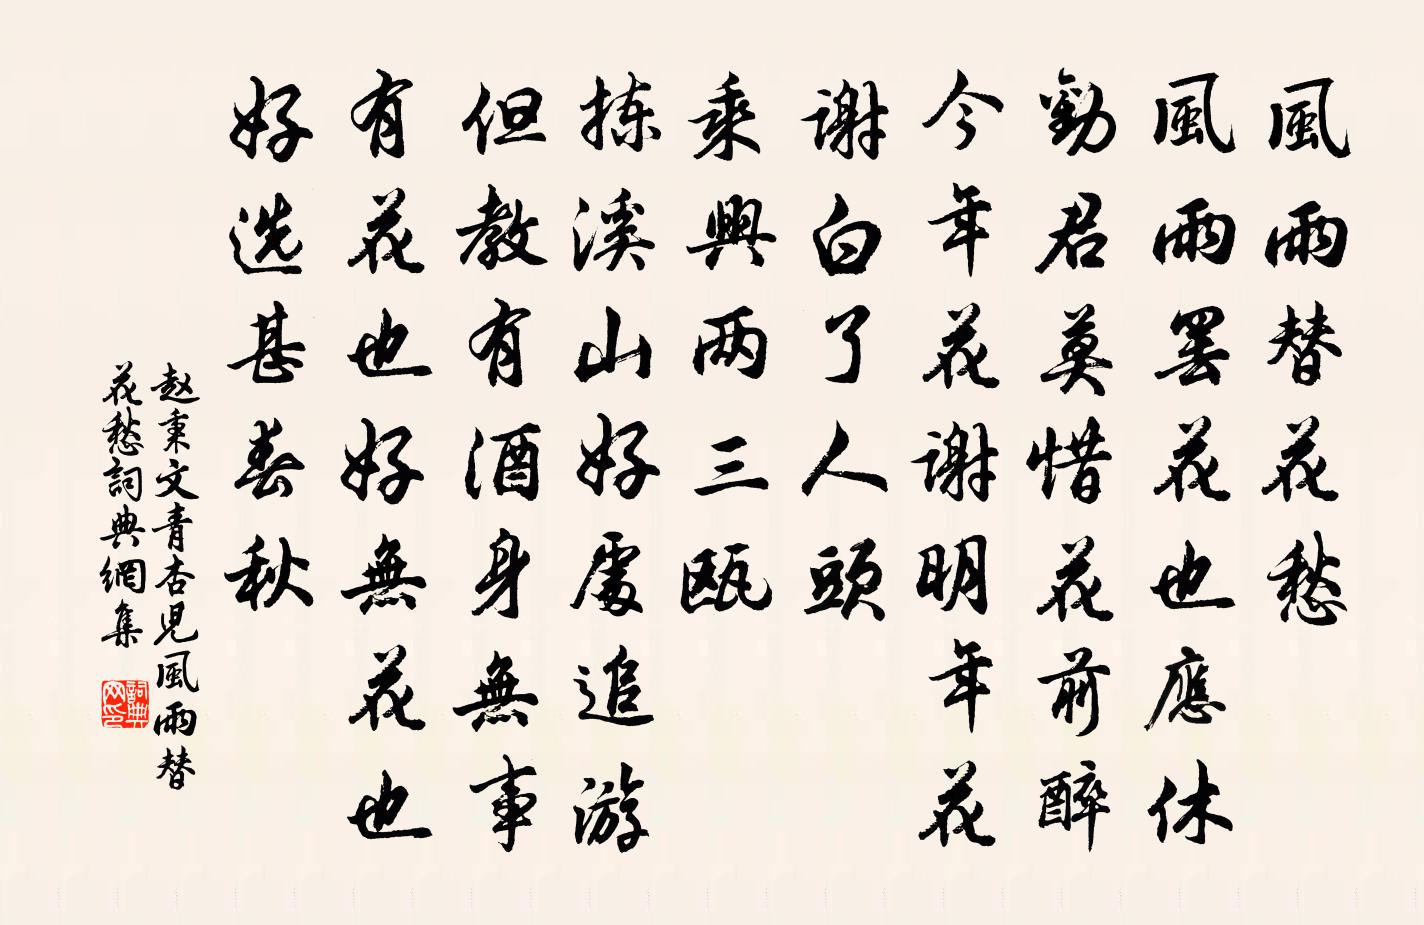 風雨替花愁
風雨罢花也應休
勸君莫惜花前醉
今年花謝明年花
謝白了人頭
乘興两三瓯
拣溪山好處追游
但教有酒身無事
有花也好無花也
好选甚春秋
赵秉文青杏児風雨替
花愁詞典網集
詞典网印